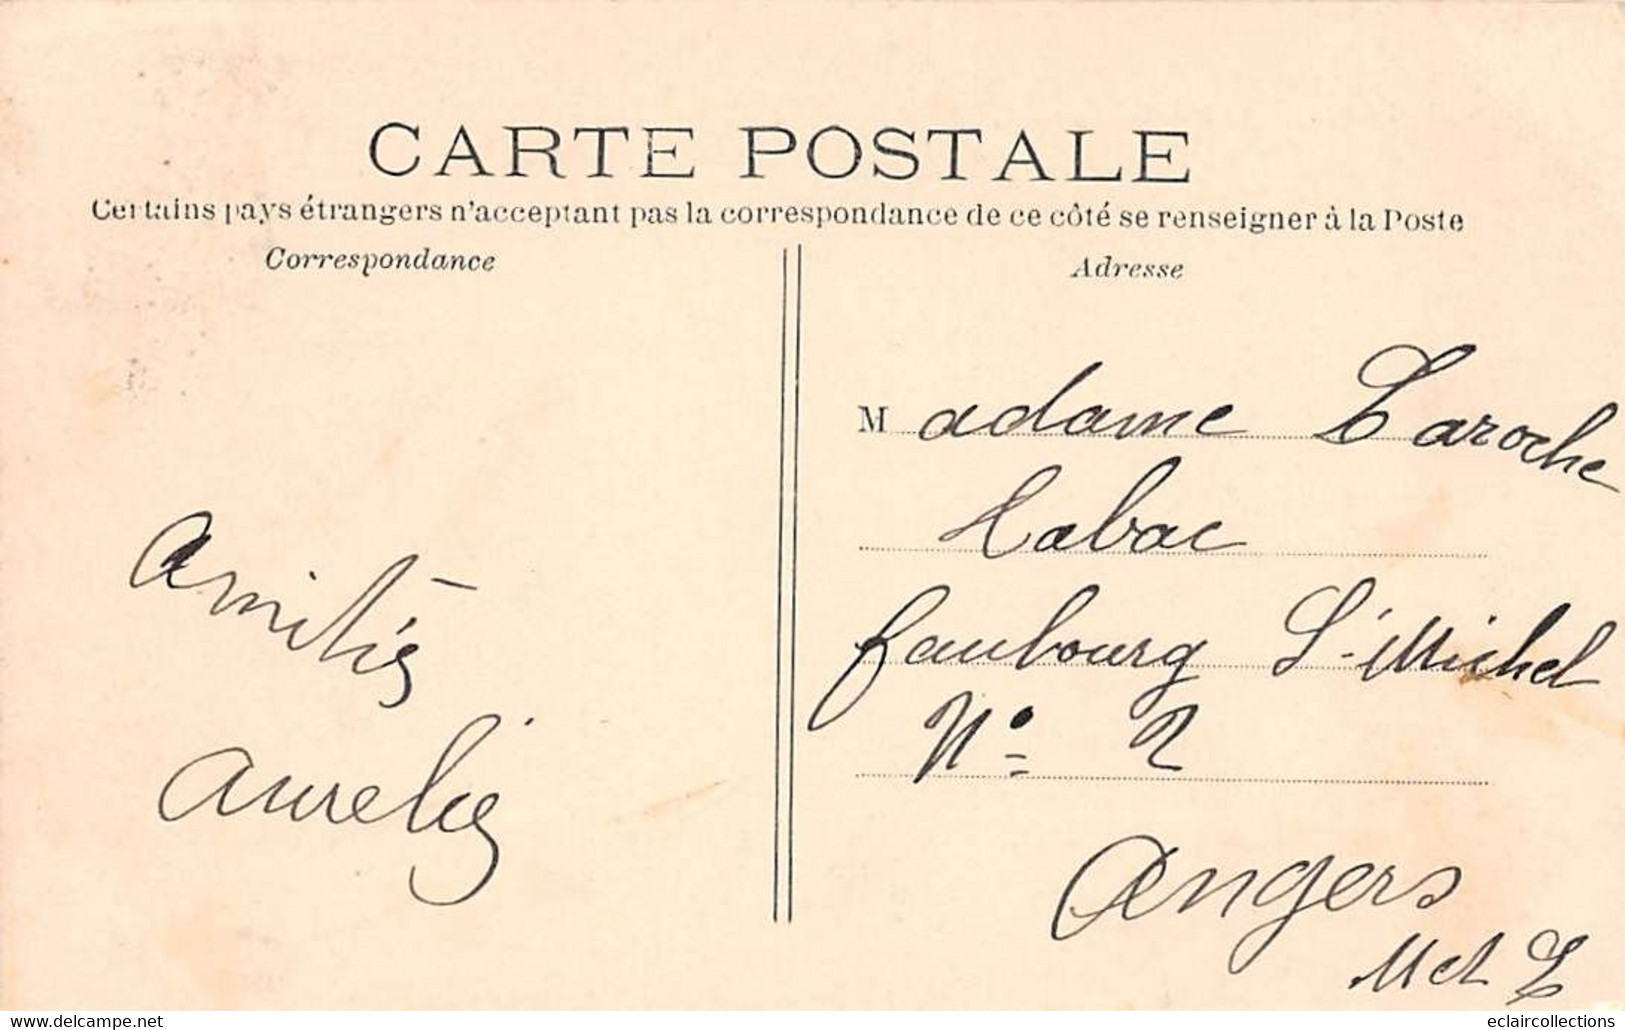 CARTE POSTALE
Certains pays étrangers n'acceptant pas la correspondance de ce côté se renseigner à la Poste
Correspondance
Adresse
Amitiés
Aurelie
Madame Laroche
Tabac
faubourg St Michel
No 2
Angers
M et L
www.delcampe.net
eclaircollections